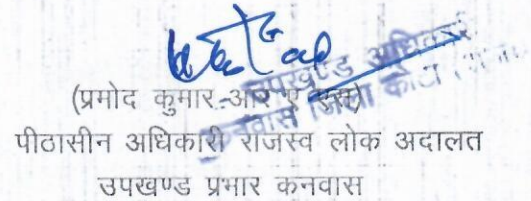 उपखण्ड अधिकारी
कनवास जिला कोटा
(प्रमोद कुमार-आर ए एस)
पीठासीन अधिकारी राजस्व लोक अदालत
उपखण्ड प्रभार कनवास